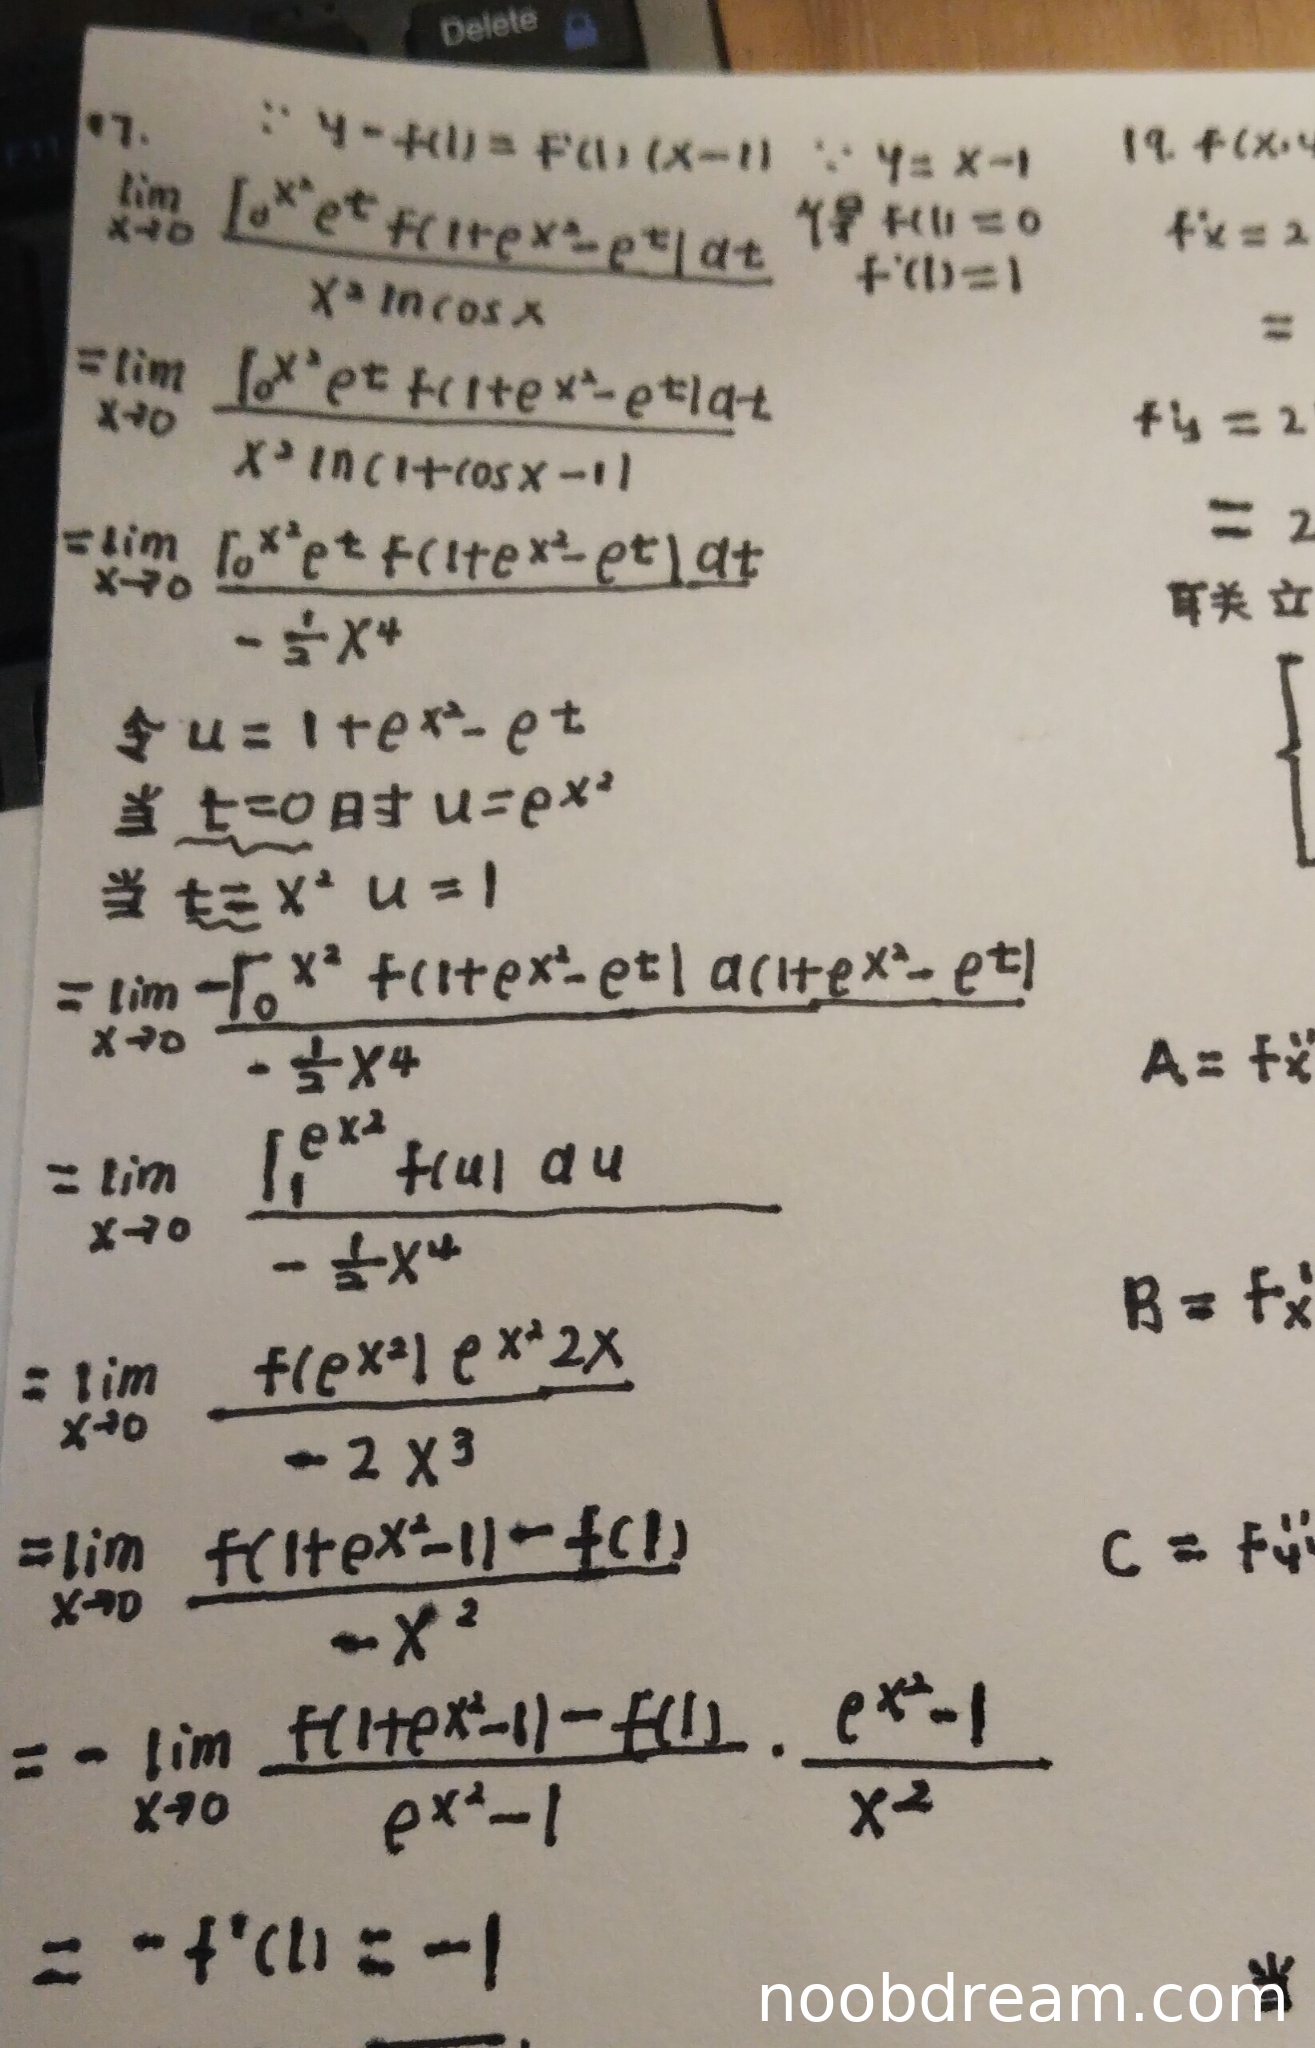 Delete
17. ∵ y-f(1)=f'(1)(x-1) ∵ y=x-1
得 f(1)=0
f'(1)=1
lim x→0 ∫₀^x² e^t f(1+e^x²-e^t)dt / x² ln cosx
=lim x→0 ∫₀^x² e^t f(1+e^x²-e^t)dt / x² ln(1+cosx-1)
=lim x→0 ∫₀^x² e^t f(1+e^x²-e^t)dt / -½x⁴
令 u=1+e^x²-e^t
当 t=0时 u=e^x²
当 t=x² u=1
=lim x→0 -∫₀^x² f(1+e^x²-e^t) d(1+e^x²-e^t) / -½x⁴
=lim x→0 ∫₁^e^x² f(u) du / -½x⁴
=lim x→0 f(e^x²) e^x² 2x / -2x³
=lim x→0 f(1+e^x²-1)-f(1) / -x²
=-lim x→0 f(1+e^x²-1)-f(1) / e^x²-1 · e^x²-1 / x²
=-f'(1)=-1
19. f(x,y
f'x=2
=
f'y=2
=2
联立
{
A=f''x
B=f''x
C=f''yy
当
noobdream.com